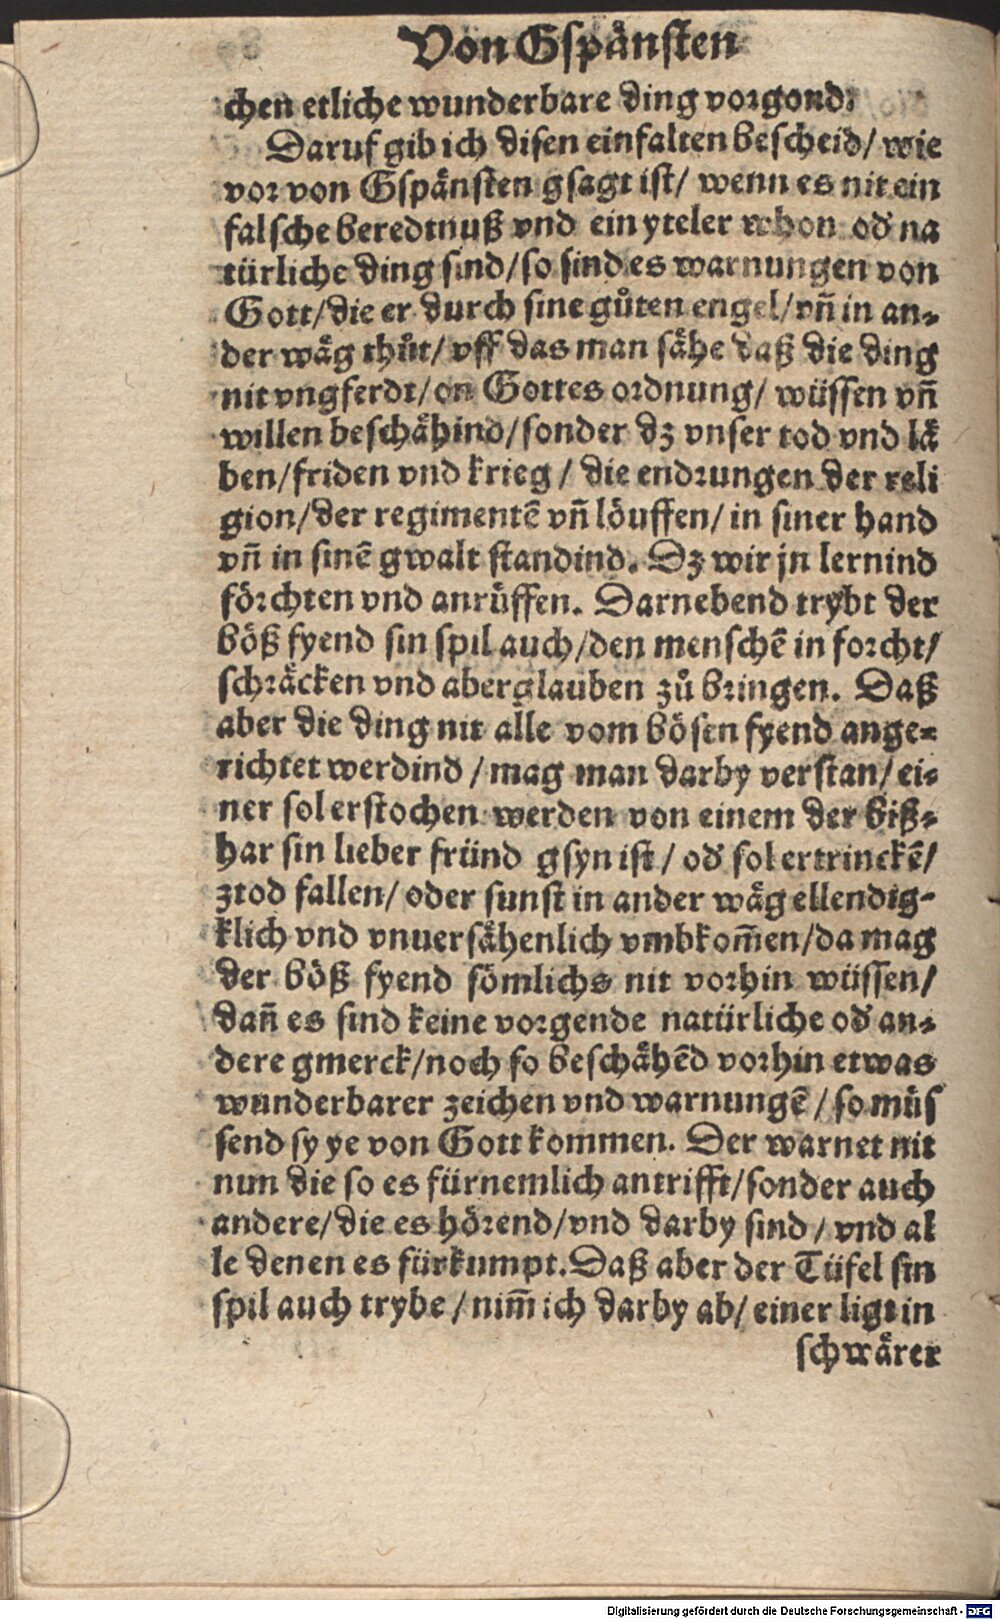 Von Gspånsten
chen etliche wunderbare ding vorgond.
Daruf gib ich disen einfalten bescheid/ wie
vor von Gspånsten gsagt ist/ wenn es nit ein
falsche beredtnuß vnd ein yteler whon od' na
türliche ding sind/ so sind es warnungen von
Gott/ die er durch sine gůten engel/ vn̄ in an-
der wåg thůt/ vff das man såhe daß die ding
nit vngferdt/ on Gottes ordnung/ wüssen vn̄
willen beschåhind/ sonder dz vnser tod vnd lå
ben/ friden vnd krieg/ die endrungen der reli
gion/ der regimentē vn̄ löuffen/ in siner hand
vn̄ in sinē gwalt standind. Dz wir jn lernind
förchten vnd anrüffen. Darnebend trybt der
böß fyend sin spil auch/ den menschē in forcht/
schråcken vnd aberglauben zů bringen. Daß
aber die ding nit alle vom bösen fyend ange-
richtet werdind/ mag man darby verstan/ ei-
ner sol erstochen werden von einem der biß-
har sin lieber fründ gsyn ist/ od' sol ertrinckē/
ztod fallen/ oder sunst in ander wåg ellendig-
klich vnd vnuersåhenlich vmbkom̄en/ da mag
der böß fyend sömlichs nit vorhin wüssen/
dan̄ es sind keine vorgende natürliche od' an-
dere gmerck/ noch so beschåhēd vorhin etwas
wunderbarer zeichen vnd warnungē/ so müs
send sy ye von Gott kommen. Der warnet nit
nun die so es fürnemlich antrifft/ sonder auch
andere/ die es hörend/ vnd darby sind/ vnd al
le denen es fürkumpt. Daß aber der Tüfel sin
spil auch trybe/ nim̄ ich darby ab/ einer ligt in
schwårer
Digitalisierung gefördert durch die Deutsche Forschungsgemeinschaft - DFG